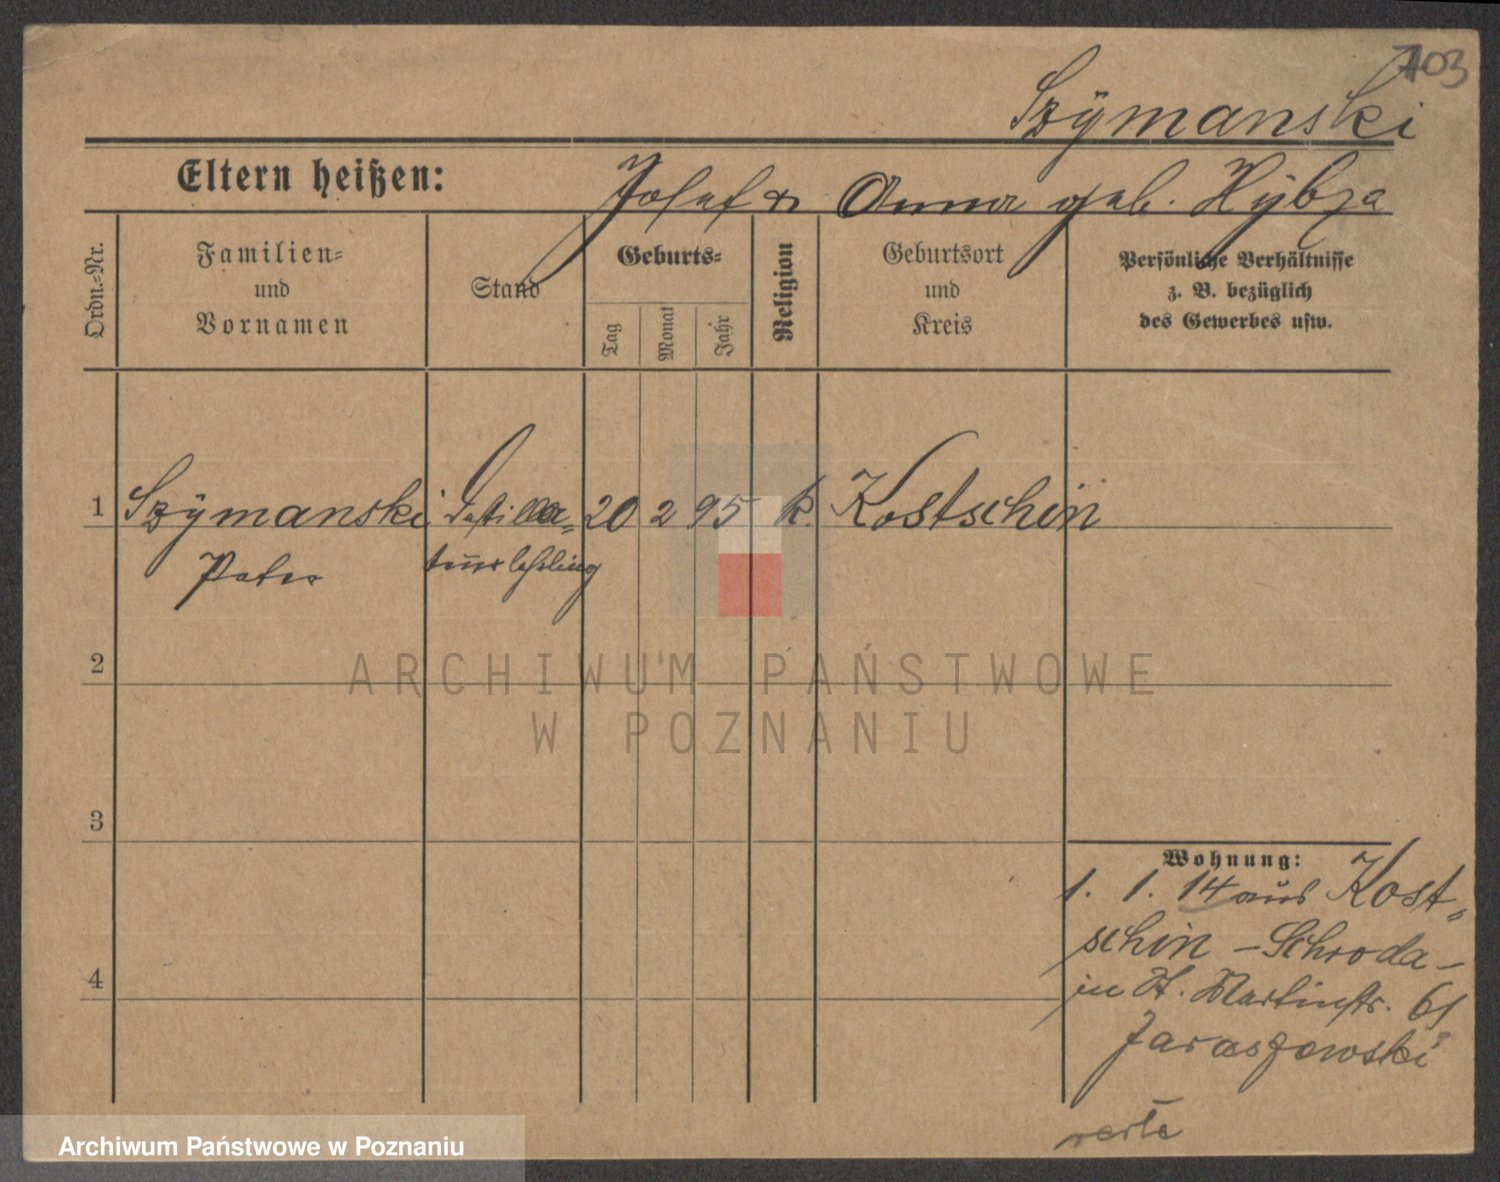 703
Szÿmanski
Eltern heißen: Josef & Anna geb. Hÿbza
Ordn.-Nr.
Familien-
und
Vornamen
Stand
Geburts-
Tag
Monat
Jahr
Religion
Geburtsort
und
Kreis
Persönliche Verhältnisse
z. B. bezüglich
des Gewerbes usw.
1 Szÿmanski Destilla- 20 2 95 k. Kostschin
Peter teurlehrling
2
ARCHIWUM PAŃSTWOWE
W POZNANIU
3
Wohnung:
1. 1. 14 aus Kost-
schin - Schroda -
in St. Martinstr. 61
4
Archiwum Państwowe w Poznaniu